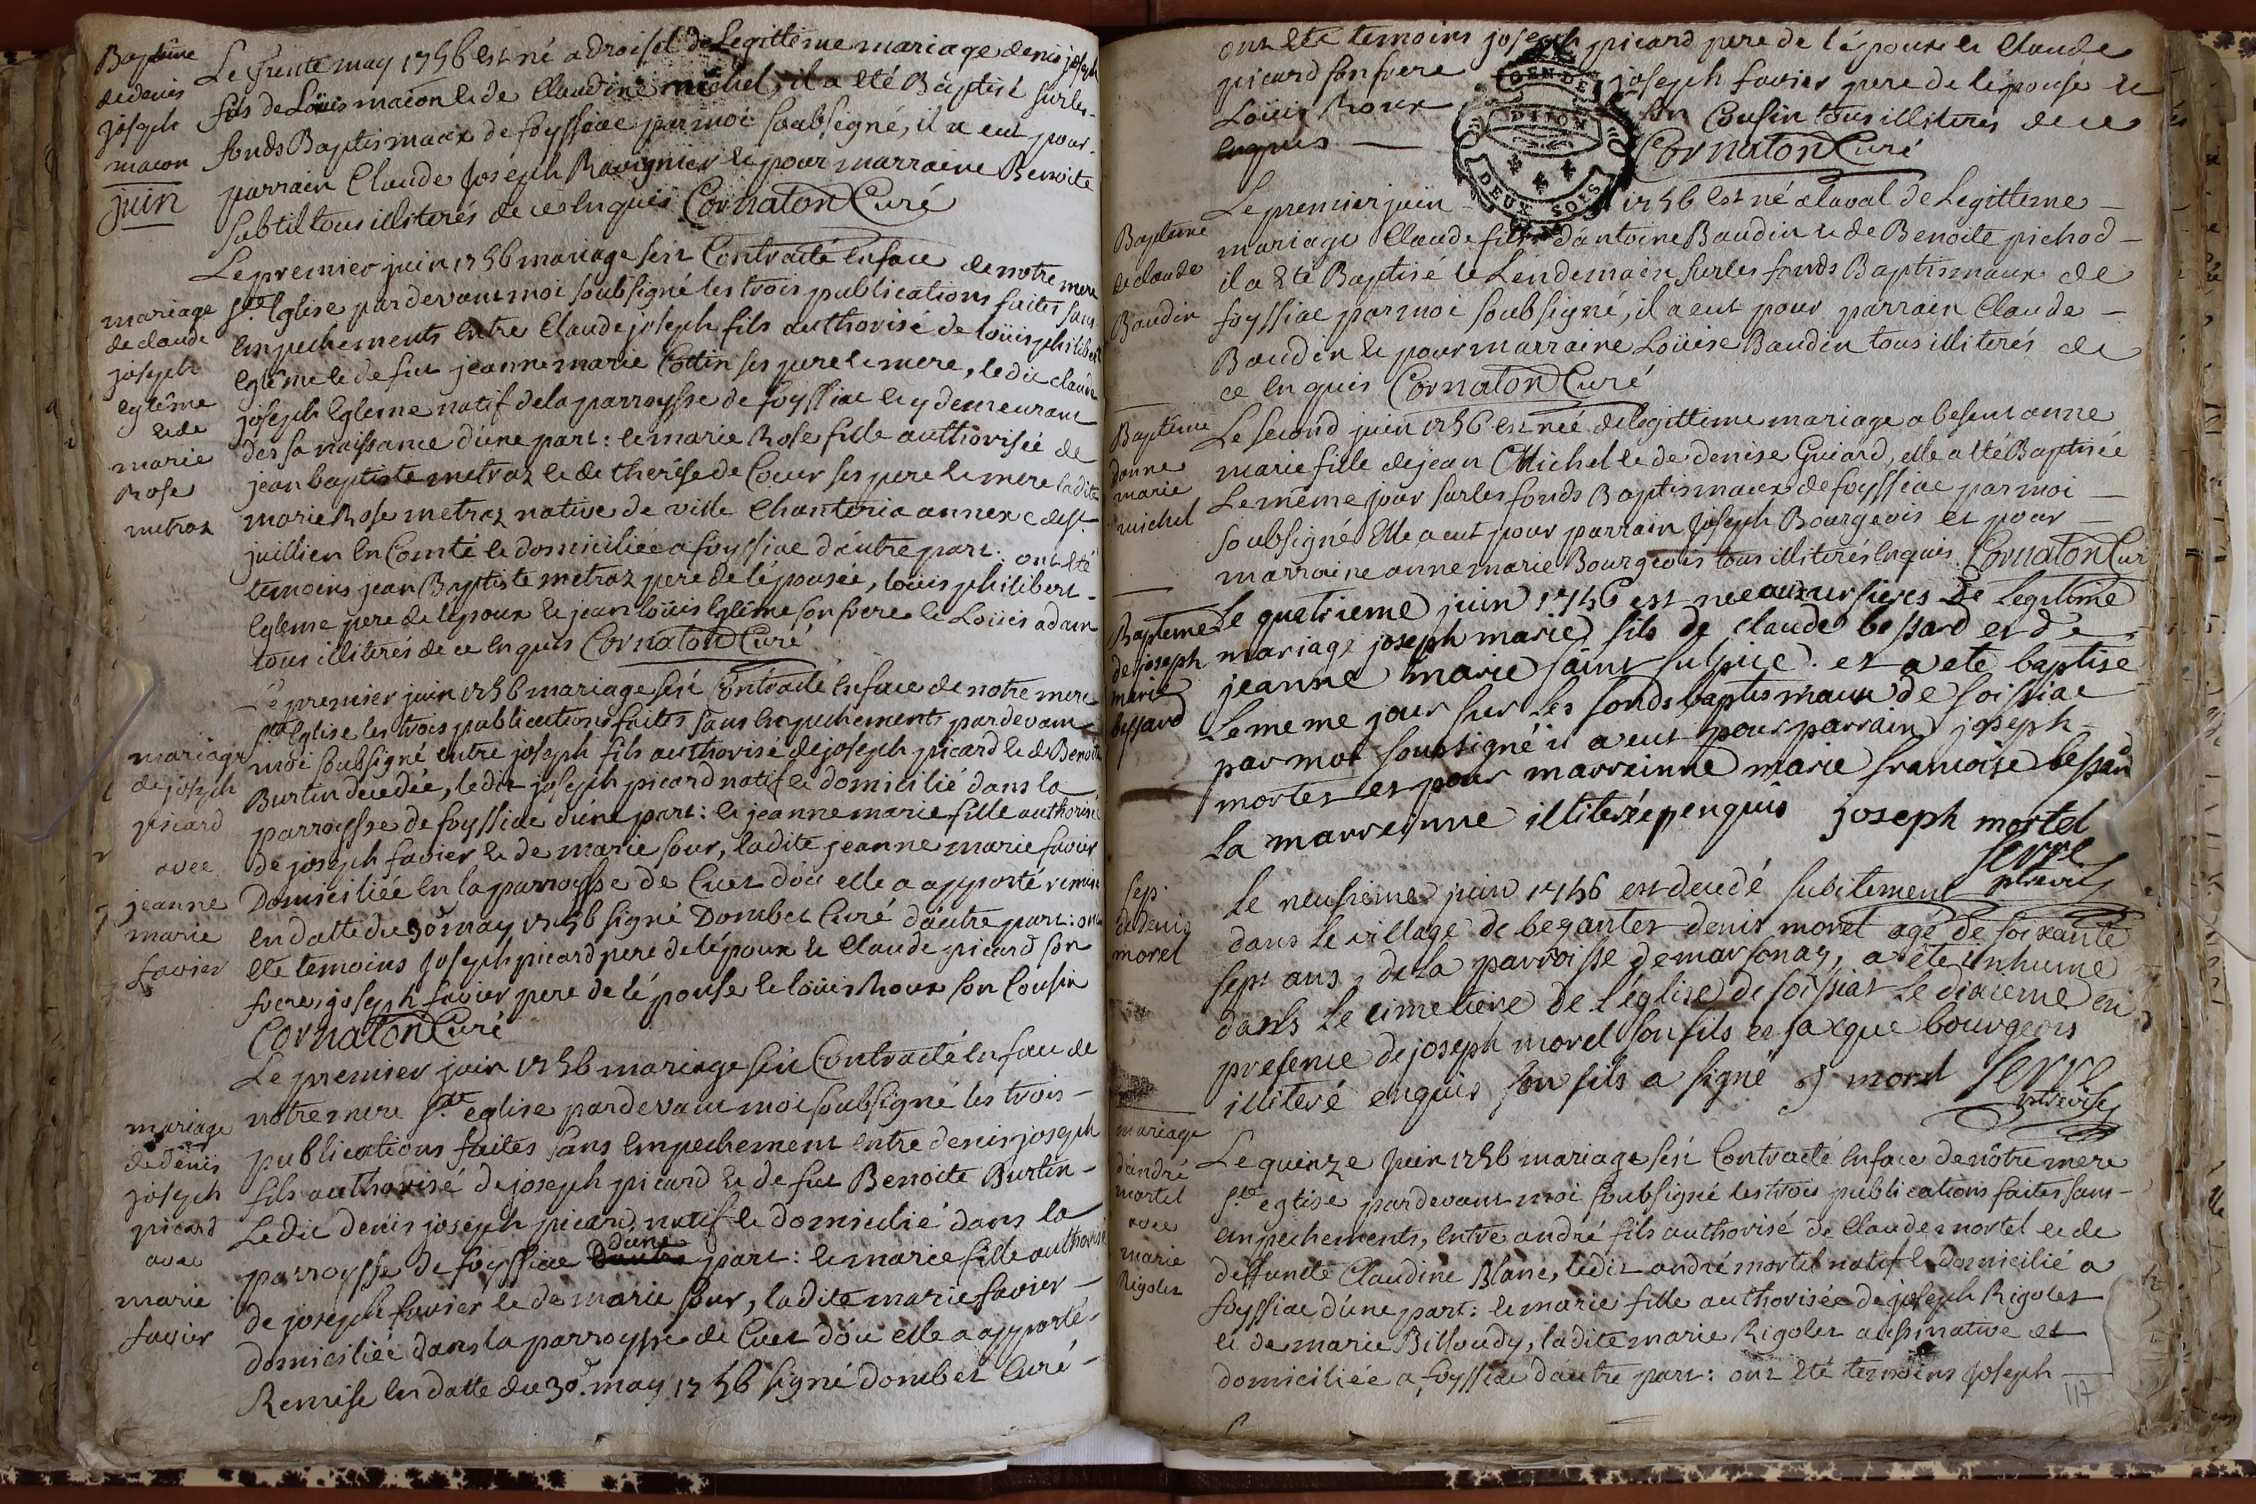 Baptême
de denis
joseph
macon
juin
Le trente may 1756 est né a Droisel de Legittime mariage denis joseph
fils de Loüis macon et de Claudine michel, il a eté Baptisé sur les
fonds Baptismaux de foyssiac par moi soubsigné, il a eut pour
parrain Claude Joseph Ravignier et pour marraine Benoite
Subtil tous illiterés de ce Enquis Cornaton Curé
mariage
de claude
joseph
eglême
et de
marie
Rose
metraz
Le premier juin 1756 mariage s'est Contracté En face de notre mere
Ste Eglise pardevant moi soubsigné les trois publications faites sans
Empechements Entre Claude joseph fils authorisé de loüis philibert
Eglême et de fut jeanne marie Cottin ses pere et mere, ledit claude
joseph Egleme natif de la parroysse de foyssiac et y demeurant
des sa naissance d'une part: et marie Rose fille authorisée de
jean baptiste metraz et de therése de Coeur ses pere et mere ladite
marie Rose metraz native de ville Chantenia annexe de st
juillien En Comté et domiciliée a foyssiac d'autre part. ont eté
temoins jean Baptiste metraz pere de l'épousée, loüis philibert
Egleme pere de l'epoux et jean loüis Eglême son frere et Loüis adam
tous illiterés de ce Enquis Cornaton Curé
mariage
de joseph
picard
avec
jeanne
marie
favier
Le premier juin 1756 mariage s'est Contracté En face de notre mere
Ste Eglise les trois publications faites sans Empechements pardevant
moi soubsigné entre joseph fils authorisé de joseph picard et de Benoite
Burtin decedée, ledit joseph picard natif et domicilié dans la
parroysse de foyssiac d'une part: et jeanne marie fille authorisé
de joseph favier et de marie sour, ladite jeanne marie favier
Domiciliée En la parroysse de Cuet d'ou elle a apporté remise
en datte du 30 may 1756 signé Dombet Curé d'autre part: ont
eté temoins Joseph picard pere de l'époux et Claude picard son
frere, joseph favier pere de l'épouse et loüis Roux son Cousin
Cornaton Curé
mariage
de denis
joseph
picard
avec
marie
favier
Le premier juin 1756 mariage s'est Contracté En face de
notre mere Ste eglise pardevant moi soubsigné les trois
publications faites sans Empechement Entre denis joseph
fils authorisé de joseph picard et de fut Benoite Burtin
Ledit denis joseph picard natif et domicilié dans la
parroysse de foyssiac d'une part: et marie fille authorisé
de joseph favier et de marie sour, ladite marie favier
domiciliée dans la parroysse de Cuet d'ou elle a apporté
Remise En datte du 30. may 1756 signé dombet Curé
ont eté temoins joseph picard pere de l'époux et Claude
picard son frere joseph favier pere de l'epouse et
Loüis Roux son Cousin tous illiterés de ce
Enquis Cornaton Curé
GEN DE DIJON
DEUX SOLS
Bapteme
de claude
Baudin
Le premier juin 1756 est né a laval de Legitteme
mariage Claude fils d'antoine Baudin et de Benoite pichod
il a Eté Baptisé le Lendemain sur les fonds Baptismaux de
foyssiac par moi soubsigné, il a eut pour parrain Claude
Baudin et pour marraine Loüise Baudin tous illiterés de
ce Enquis Cornaton Curé
Bapteme
d'anne
marie
michel
Le second juin 1756 est née de legittime mariage a besent anne
marie fille de jean Michel et de denise Guiard, elle a eté Baptisée
Le même jour sur les fonds Baptismaux de foyssiac par moi
soubsigné Elle a eut pour parrain Joseph Bourgeois et pour
marraine anne marie Bourgeois tous illiterés Enquis Cornaton Curé
Bapteme
de joseph
marie
bessard
Le quatrieme juin 1756 est né aux ursieres De Legitime
mariage joseph marie fils de claude bessard et de
jeanne marie saint sulpice. et a eté baptisé
Le meme jour sur Les fonds baptismaux de foissiac
par moi soussigné il a eut pour parrain joseph
mortel et pour marreinne marie francoise bessard
La marreinne illiterée enquis joseph mortel
Serre
sep.
de denis
morel
Le neusieme juin 1756 est decedé subitement
dans Le village de begantes denis morel agé de soixante
sept ans, de La parroisse de marsonaz, a ete inhumé
dans Le cimetiere de L'eglise de foissiat Le dixieme en
presence de joseph morel son fils et jacque bourgeois
illiteré enquis son fils a signé J morel Serre
mariage
d'andré
mortel
avec
marie
Rigolet
Le quinze Juin 1756 mariage s'est Contracté En face de nôtre mere
Ste eglise pardevant moi soubsigné les trois publications faites sans
empechements, Entre andré fils authorisé de Claude mortel et de
deffuncte Claudine Blanc, ledit andré mortel natif et domicilié a
foyssiac d'une part: et marie fille authorisée de joseph Rigolet
et de marie Billoudy, ladite marie Rigolet aussi native et
domiciliée a foyssiac d'autre part: ont Eté temoins Joseph
117